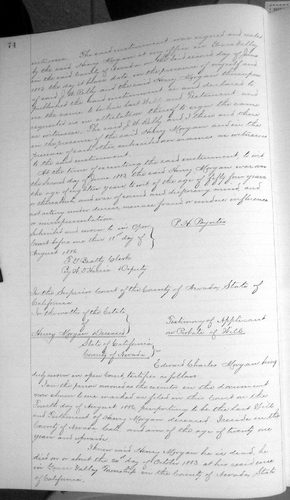 74
witness. The said instrument was signed and sealed
by the said Henry Morgan at my office in Grass Valley
in the said County of Nevada on the second day of June
1882 the day it bears date in the presence of myself and
of said J. C. Kelly and thereon Henry Morgan thereupon
published the said instrument as and declared to
us the same to be his last Will and Testament and
requested us in attestation thereof to sign the same
as witnesses. The said J. C. Kelly and I then and there
in the presence of the said Henry Morgan and in the
presence of each other subscribed our names as witnesses
to the said instrument.
At the time of executing the said instrument, to wit
the second day of June 1882, the said Henry Morgan was over
the age of eighteen years to wit of the age of fifty four years
or thereabout, and was of sound and disposing mind and
not acting under duress, menace, fraud or undue influence
or misrepresentation.
Subscribed and sworn to in open
Court before me this 18th day of
August 1884
P. H. Paynter
F. G. Beatty Clerk
By Deputy
In the Superior Court of the County of Nevada State of
California.
In the matter of the Estate
of
Henry Morgan deceased
Testimony of Applicant
on Probate of Will
State of California
County of Nevada
Edward Charles Morgan being
duly sworn in open Court testifies as follows:
I am the person named as the executor in the document
now shown to me marked as filed in this Court on the
Fourth day of August 1884 purporting to be the last Will
and Testament of Henry Morgan deceased. I reside in the
County of Nevada and am of the age of twenty one
years and upwards.
I knew said Henry Morgan he is dead, he
died on or about the 20th day of October 1883 at his residence
in Grass Valley Township in the County of Nevada State
of California.